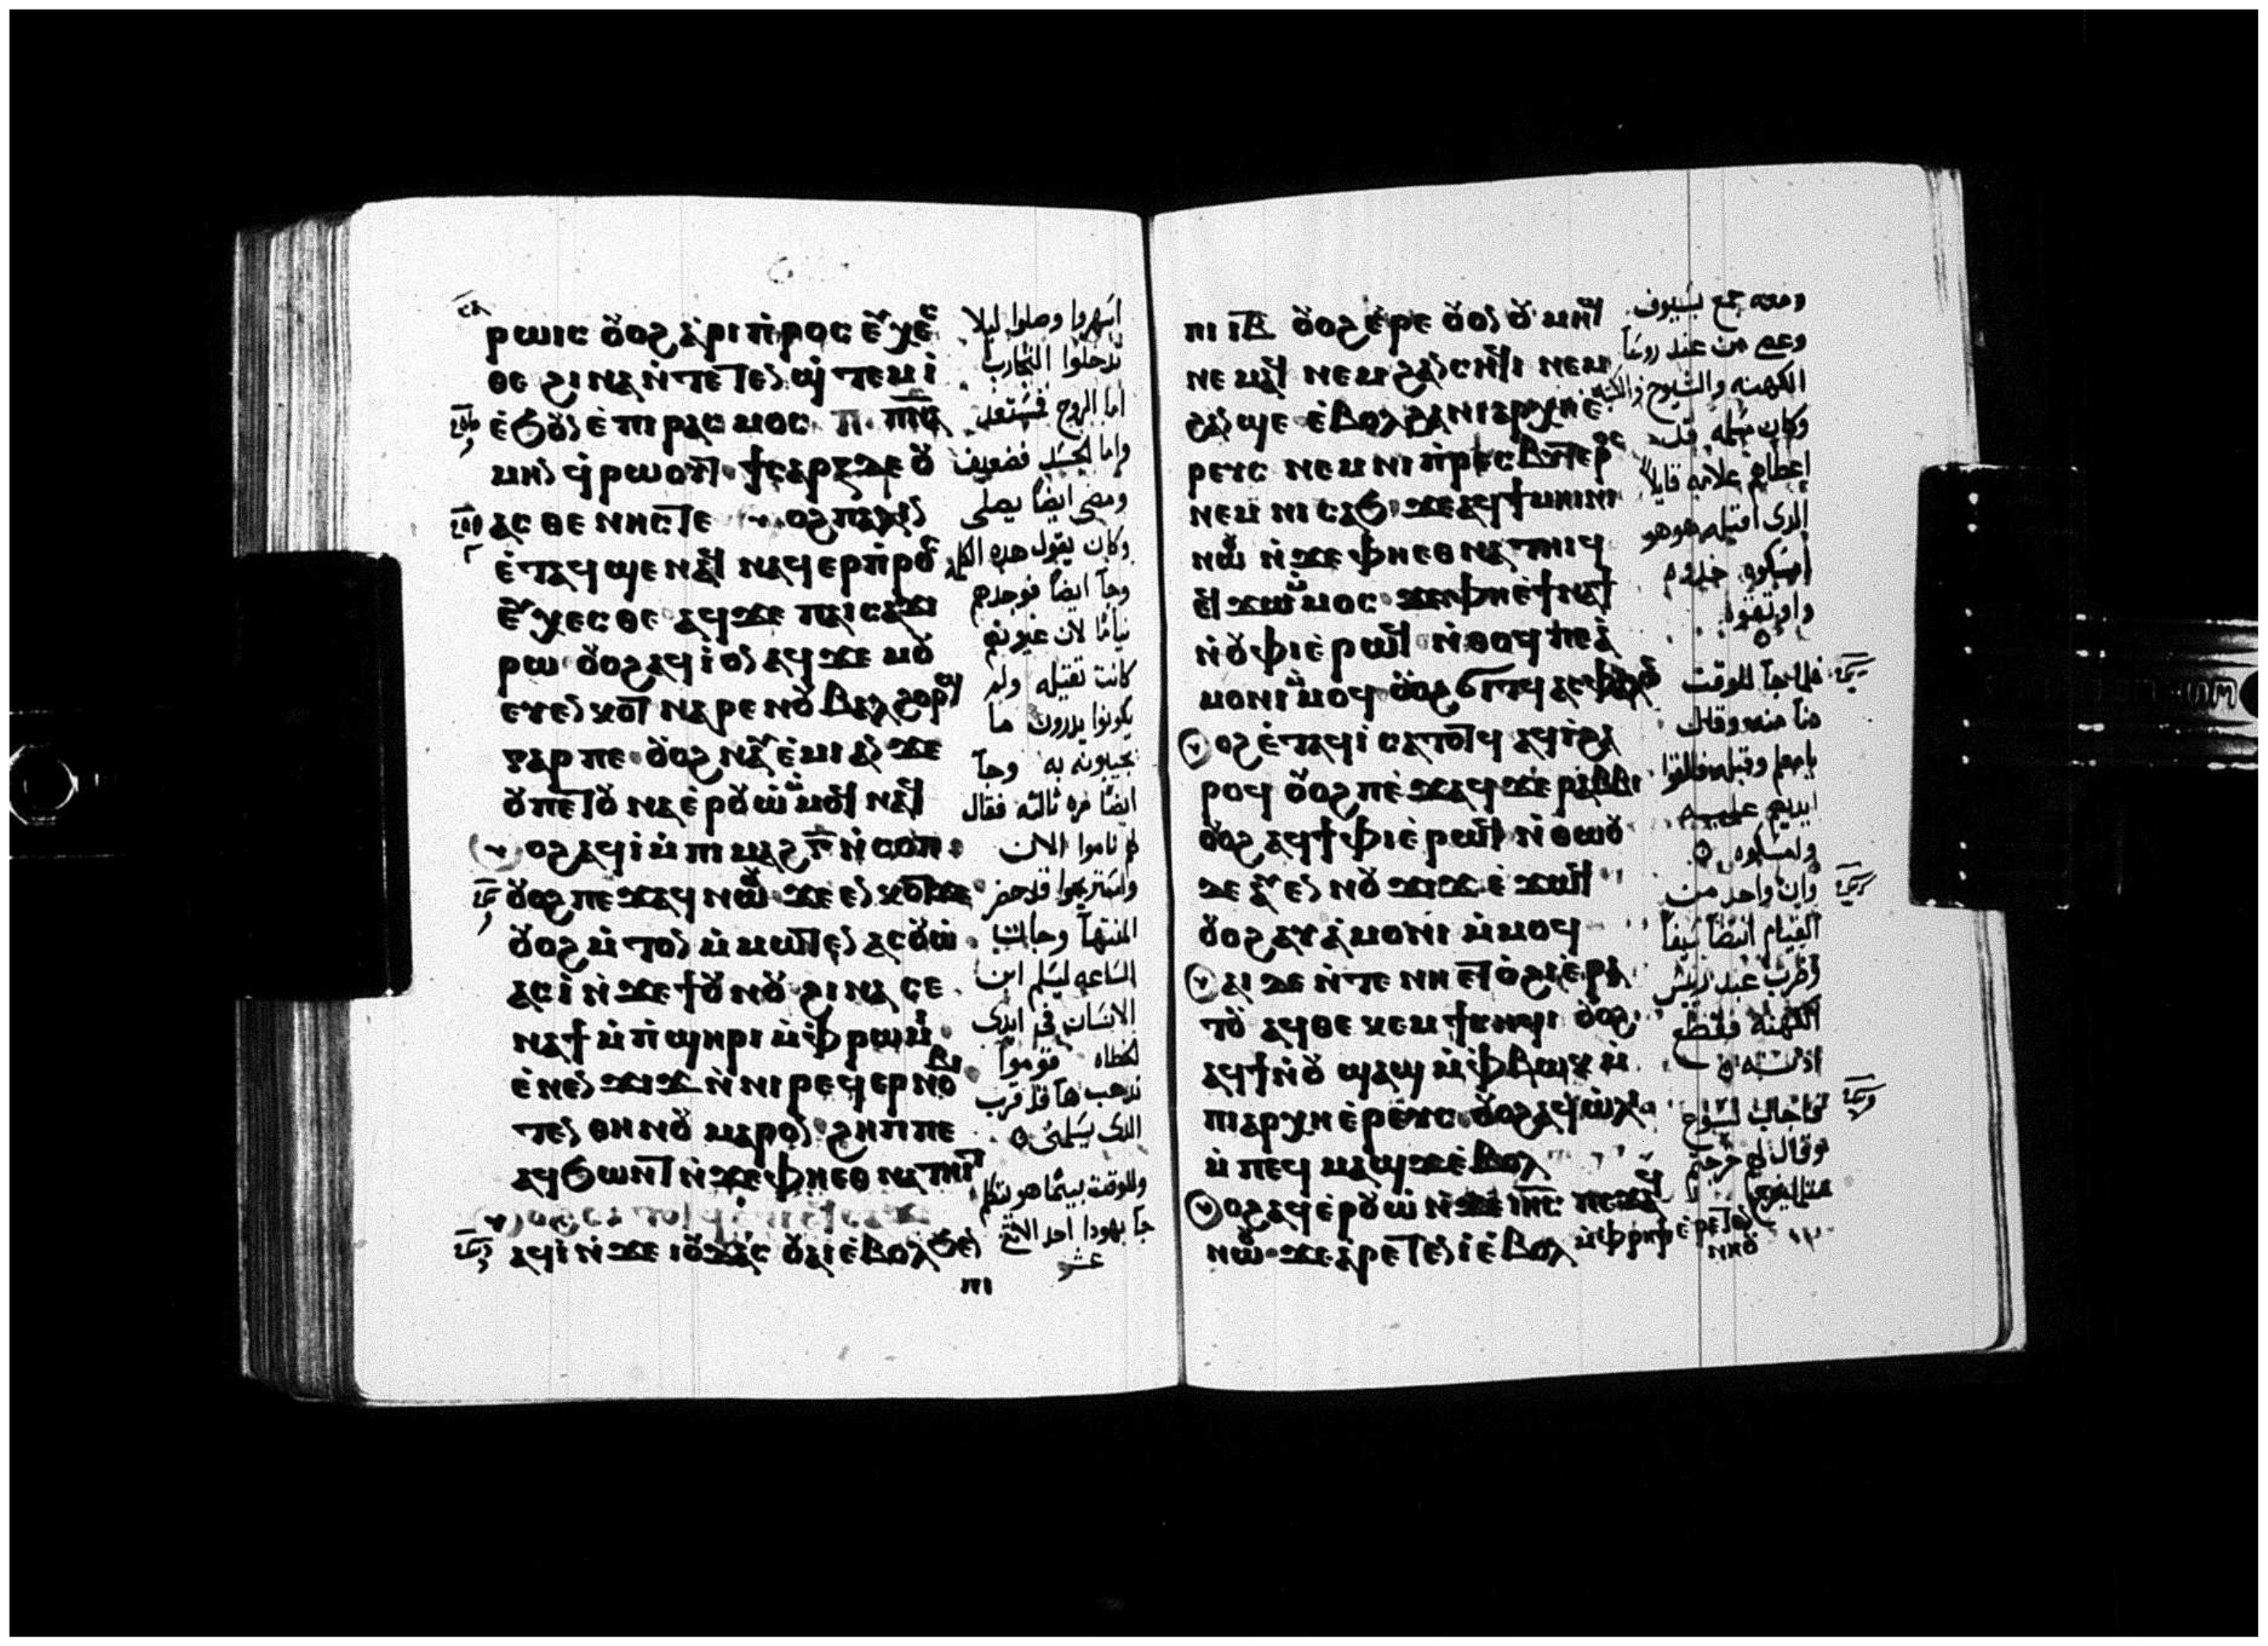 ⲣⲱⲓⲥ ⲟⲩⲟϩ ⲁ̀ⲣⲓⲡ̀ⲣⲟⲥⲉⲩⲭⲉⲥ
ⲑⲉ ϩⲓⲛⲁ ⲛ̀ⲧⲉⲧⲉⲛϣ̀ⲧⲉⲙⲓ̀
ⲉ̀ϧⲟⲩⲛ ⲉ̀ⲡⲓⲣⲁⲥⲙⲟⲥ ⲡ ⲡ̅ⲛ̅ⲁ̅
ⲙⲏⲛ ϥ̀ⲣⲱⲟⲩⲧ ϯⲥⲁⲣⲝ ⲇⲉ ⲟⲩ
ⲁⲥⲑⲉⲛⲏⲥ ⲧⲉ ⲟϩ ⲡⲁⲗⲓⲛ
ⲉ̀ⲧⲁϥϣⲉ ⲛⲁϥ ⲛⲁϥⲉⲣⲡ̀ⲣⲟⲥ
ⲉⲩⲭⲉⲥⲑⲉ ⲁϥϫⲉ ⲡⲁⲓⲥⲁϫⲓ
ⲣⲱ ⲟⲩⲟϩ ⲁϥⲓ̀ ⲟⲛ ⲁϥϫⲉⲙⲟⲩ
ⲉⲩⲉⲛⲕⲟⲧ ⲛⲁⲣⲉ ⲛⲟⲩⲃⲁⲗ ϩⲟⲣϣ
ⲅⲁⲣ ⲡⲉ ⲟⲩⲟϩ ⲛⲁⲩⲉ̀ⲙⲓ ⲁⲛ ϫⲉ
ⲟⲩ ⲡⲉⲧⲟⲩⲛⲁⲉ̀ⲣⲟⲩⲱ̀ ⲙ̀ⲙⲟϥ ⲛⲁϥ
ⲟϩ ⲁϥⲓ̀ ⲙ̀ⲡⲓⲙⲁϩ ⲅ̅ ⲛ̀ⲥⲟⲡ
ⲟⲩⲟϩ ⲡⲉϫⲁϥ ⲛⲱⲟⲩ ϫⲉ ⲉⲛⲕⲟⲧ ϫⲉ
ⲟⲩⲟϩ ⲙ̀ⲧⲟⲛ ⲙ̀ⲙⲱⲧⲉⲛ ⲁⲥⲟⲩⲱ̀
ⲁⲥⲓ̀ ⲛ̀ϫⲉ ϯⲟⲩⲛⲟⲩ ϩⲓⲛⲁ ⲥⲉ
ⲛⲁϯ ⲙ̀ⲡ̀ϣⲏⲣⲓ ⲙ̀ⲫ̀ⲣⲱⲙⲓ
ⲉ̀ⲛⲉⲛϫⲓϫ ⲛ̀ⲛⲓⲣⲉϥⲉⲣⲛⲟⲃⲓ
ⲧⲉⲛ ⲑⲏⲛⲟⲩ ⲙⲁⲣⲟⲛ ϩⲏⲡⲡⲉ
ⲁϥϧⲱⲛⲧ ⲛ̀ϫⲉ ⲫⲏⲉⲑⲛⲁⲧⲏⲓⲧ
ⲁϥⲓ̀ ⲛ̀ϫⲉ ⲓⲟⲩⲇⲁⲥ ⲟⲩⲁⲓ ⲉ̀ⲃⲟⲗ ϧⲉⲛ
ⲡⲓ
اسهروا وصلوا ليلا
تدخلوا التجارب
اما الروح فمستعد
واما الجسد فضعيف
ومضى ايضا يصلي
وكان يقول هذه الكلمة
وجا ايضا فوجدهم
نياما لان عيونهم
كانت ثقيله ولم
يكونوا يدرون ما
يجيبونه به وجا
ايضا مره ثالثه فقال
لهم ناموا الان
واستريحوا قد حضر
المنتها وجات
الساعه ليسلم ابن
الانسان في ايدي
الخطاه قوموا
نذهب ها قد قرب
الذي يسلمني
وللوقت بينما هو يتكلم
جا يهودا احد الاثني
عشر
ⲡⲓ ⲓ̅ⲃ̅ ⲟⲩⲟϩ ⲉ̀ⲣⲉ ⲟⲩⲟⲛ ⲟⲩⲙⲏϣ
ⲛⲉⲙⲁϥ ⲛⲉⲙ ϩⲁⲛⲥⲏϥⲓ ⲛⲉⲙ
ϩⲁⲛϣⲉ ⲉ̀ⲃⲟⲗ ϩⲁ ⲛⲓⲁⲣⲭⲏⲉ̀
ⲣⲉⲩⲥ ⲛⲉⲙ ⲛⲓⲡ̀ⲣⲉⲥⲃⲩⲧⲉⲣⲟⲥ
ⲛⲉⲙ ⲛⲓⲥⲁϧ ⲛⲉ ⲁϥϯⲙⲏⲓⲛⲓ
ⲛⲱⲟⲩ ⲛ̀ϫⲉ ⲫⲏⲉⲑⲛⲁⲧⲏⲓϥ
ⲉϥϫⲱ ⲙ̀ⲙⲟⲥ ϫⲉ ⲫⲏⲉ̀ϯⲛⲁϯ
ⲛ̀ⲟⲩⲫⲓ ⲉ̀ⲣⲱϥ ⲛ̀ⲑⲟϥ ⲡⲉ ⲁ̀
ⲙⲟⲛⲓ ⲙ̀ⲙⲟϥ ⲟⲩⲟϩ ϭⲓⲧϥ
ⲟϩ ⲉ̀ⲧⲁϥⲓ̀ ⲥⲁⲧⲟⲧϥ ⲁϥⲓ̀ ϩⲁ
ⲣⲟϥ ⲟⲩⲟϩ ⲡⲉ̀ϫⲁϥ ϫⲉ ⲣⲁⲃⲃⲓ
ⲟⲩⲟϩ ⲁϥϯⲫⲓ ⲉ̀ⲣⲱϥ ⲛ̀ⲑⲱⲟⲩ
ⲇⲉ ⲁⲩⲉⲛ ⲛⲟⲩϫⲓϫ ⲉ̀ϫⲱϥ
ⲟⲩⲟϩ ⲁⲩⲁ̀ⲙⲟⲛⲓ ⲙ̀ⲙⲟϥ
ⲁⲓ ⲇⲉ ⲛ̀ⲧⲉ ⲛⲏⲉⲧⲟ̀ϩⲓ ⲉ̀ⲣⲁ
ⲧⲟⲩ ⲁϥⲑⲉⲕⲉⲙ ϯⲥⲏϥⲓ ⲟⲩⲟϩ
ⲁϥϯ ⲛ̀ⲟⲩϣⲁϣ ⲙ̀ⲫ̀ⲃⲱⲕ ⲙ̀
ⲡⲓⲁⲣⲭⲏⲉ̀ⲣⲉⲩⲥ ⲟⲩⲟϩ ⲁϥⲱ̀ⲗⲓ
ⲙ̀ⲡⲉϥⲙⲁϣϫ ⲉ̀ⲃⲟⲗ
ⲟϩ ⲁϥⲉ̀ⲣⲟⲩⲱ̀ ⲛ̀ϫⲉ ⲓ̅ⲏ̅ⲥ̅ ⲡⲉϫⲁϥ
ⲛⲱⲟⲩ ϫⲉ ⲁⲣⲉⲧⲉⲛⲓ̀ ⲉ̀ⲃⲟⲗ ⲙ̀ⲫ̀ⲣⲏϯ ⲉ̀ⲣⲉⲧⲉⲛ
ⲛⲏⲟⲩ
ومعه جمع بسيوف
وعصي من عند روسا
الكهنه والشيوخ والكتبه
وكان مسلمه قد
اعطاهم علامه قايلا
الذي اقبله هو هو
امسكوه خذوه
واوثقوه
فلما جا للوقت
دنا منه وقال
يا معلم وقبله فالقوا
ايديهم عليه
وامسكوه
وان واحد من
القيام انتضا سيفا
وضرب عبد رييس
الكهنه فقطع
اذنه
فاجاب يسوع
وقال لهم خرجتم